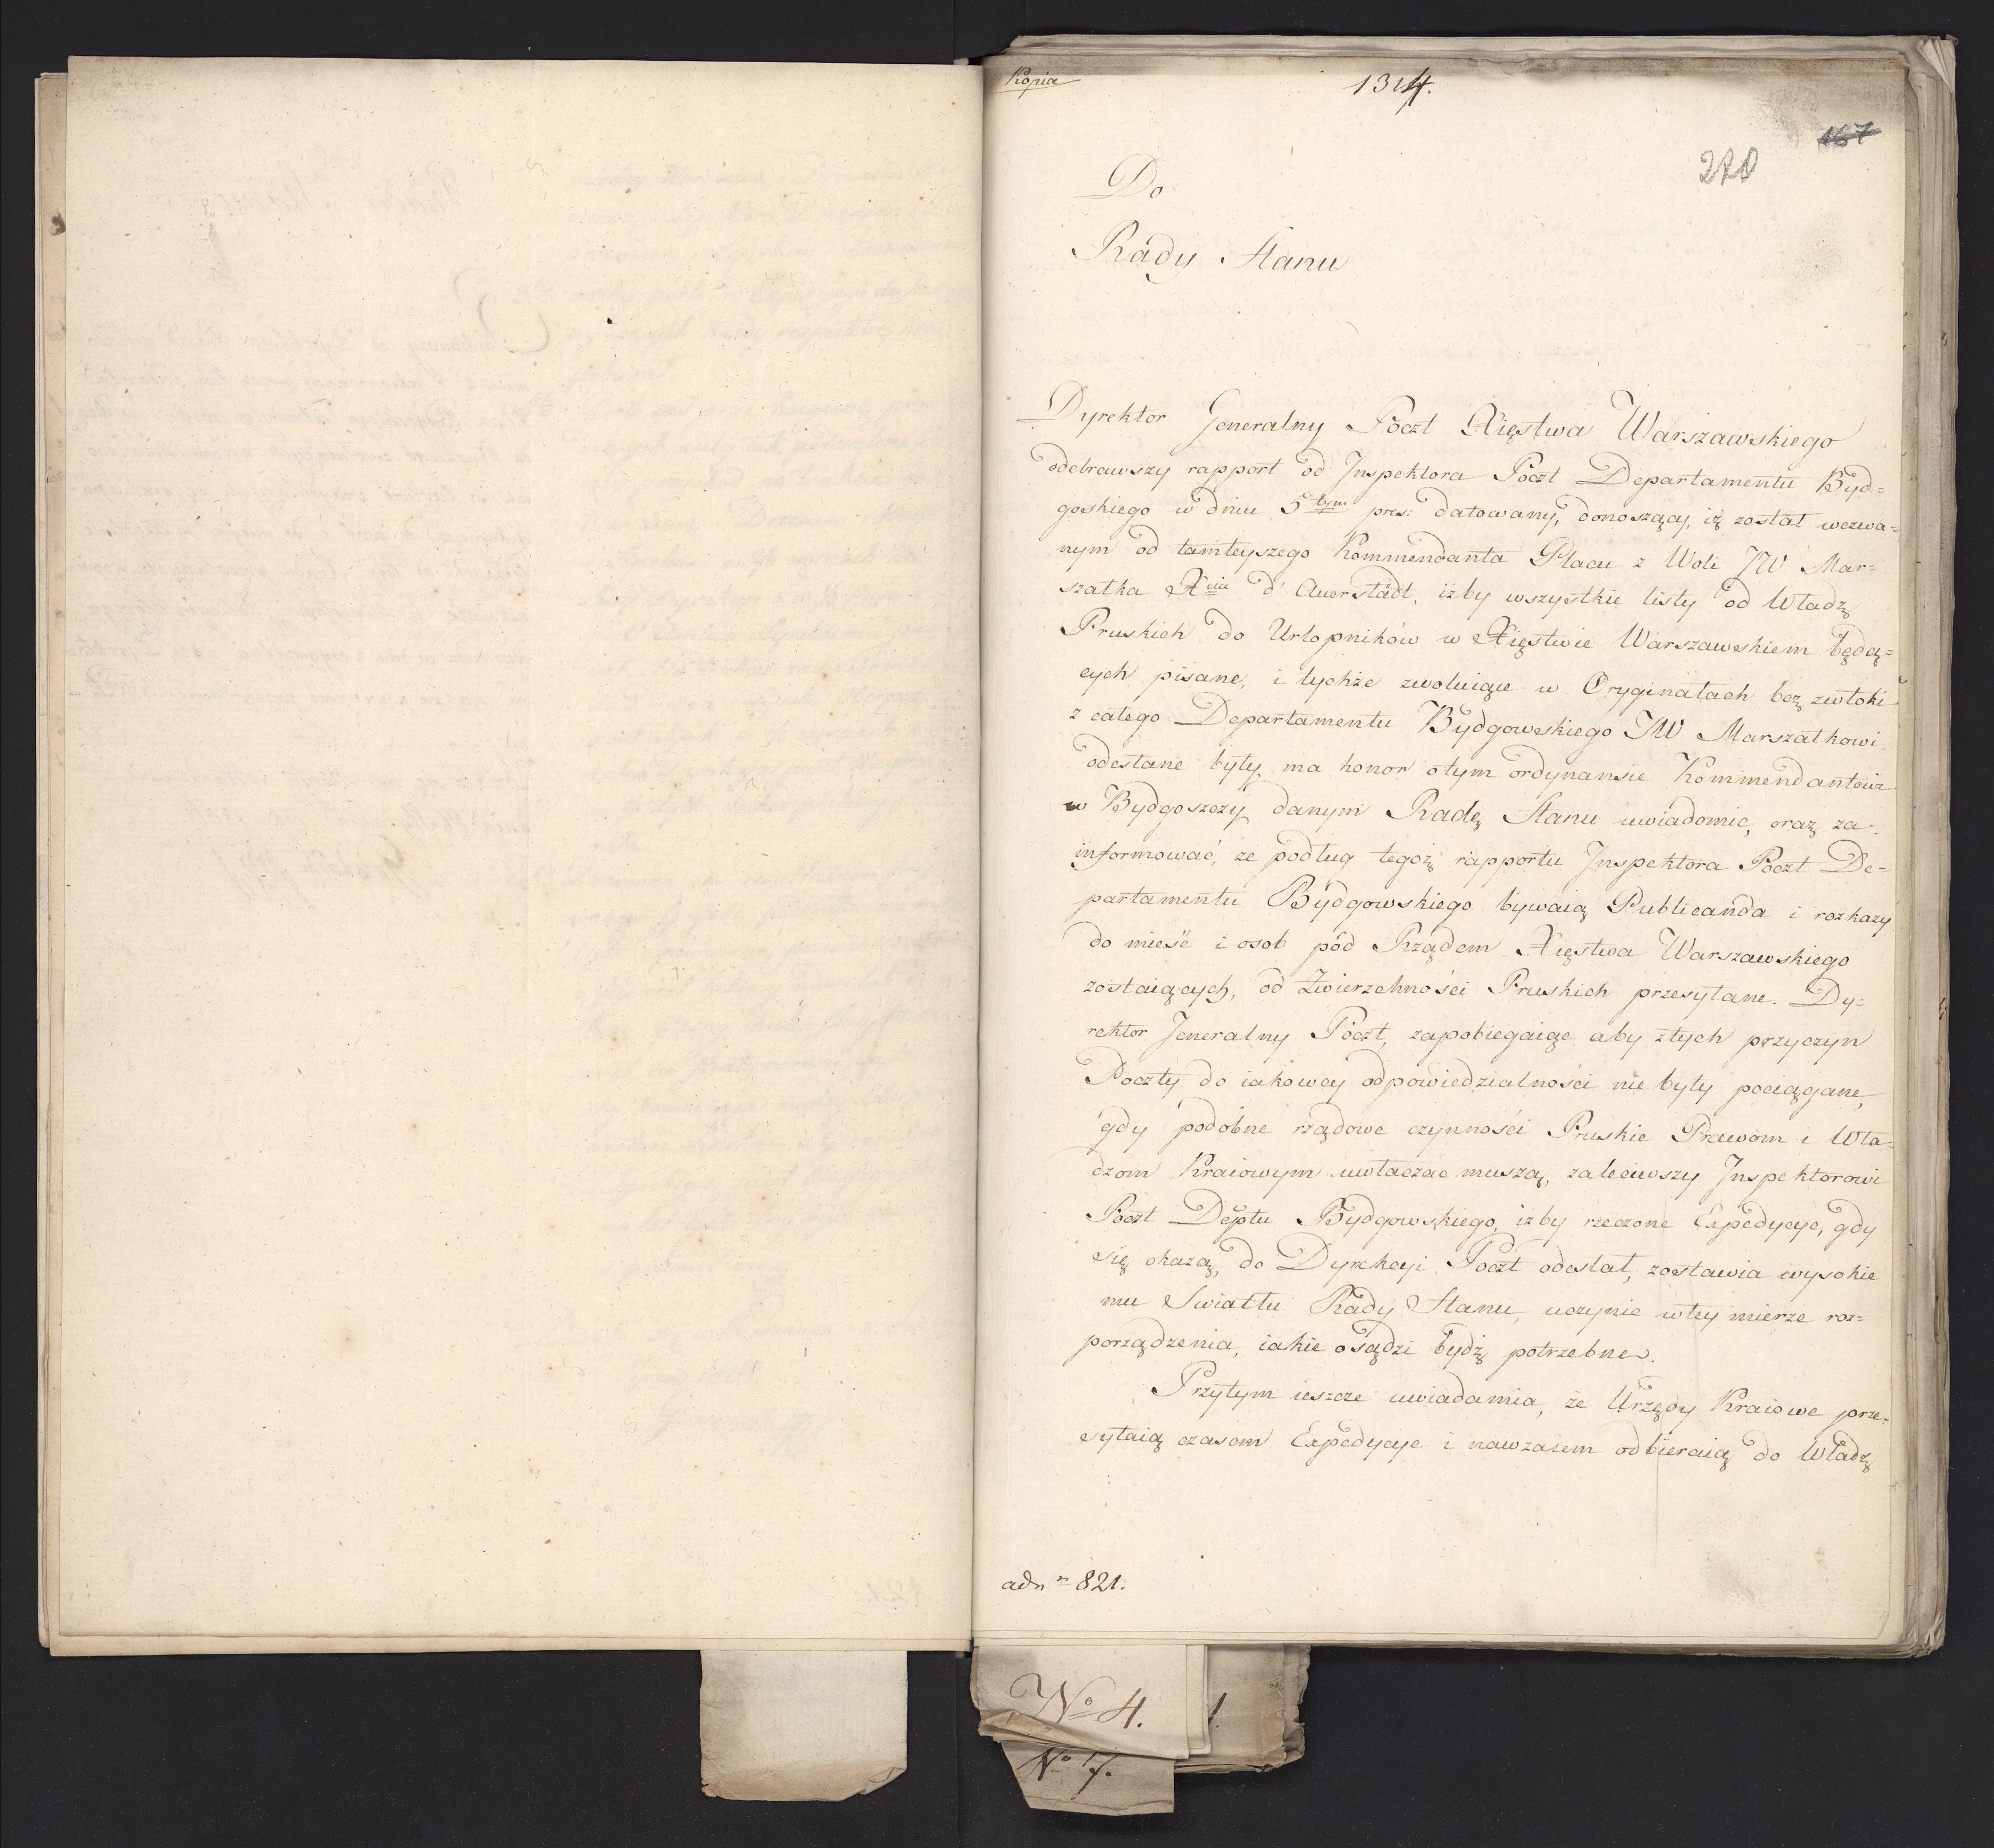 Kopia
1314.
167
270
Do
Rady Stanu
Dyrektor Jeneralny Poczt Xięstwa Warszawskiego
odebrawszy rapport od Inspektora Poczt Departamentu Byd=
goskiego w dniu 5tym pres: datowany, donoszący, iż został wezwa=
nym od tamteyszego Kommendanta Placu z Woli JW Mar=
szałka Xcia d' Auerstädt, iżby wszystkie listy od Władz
Pruskich do Urlopników w Xięstwie Warszawskiem będą=
cych pisane, i tychże zwołuiące w Oryginałach bez zwłoki
z całego Departamentu Bydgowskiego JW Marszałkowi
odesłane były, ma honor o tym ordynansie Kommendantowi
w Bydgoszczy danym Radę Stanu uwiadomic, oraz za=
informować, że podług tegoż rapportu Inspektora Poczt De=
partamentu Bydgowskiego bywaią Publicanda i rozkazy
do mieść i osob pód Rządem Xięstwa Warszawskiego
zostaiących, od Zwierzchności Pruskich przesyłane. Dy=
rektor Jeneralny Poczt, zapobiegaiąc aby ztych przyczyn
Poczty do iakowey odpowiedzialności nie były pociągane,
gdy podobne rządowe czynności Pruskie Prawom i Wła=
dzom Kraiowym uwłaczac muszą, zaleciwszy Inspektorowi
Poczt Deptu Bydgowskiego, iżby rzeczone Expedycye, gdy
się okażą, do Dyrekcyi Poczt odesłał, zostawia wysokie
mu Swiatłu Rady Stanu, uczynic w tey mierze roz=
porządzenia, iakie osądzi bydź potrzebne.
Przytym ieszcze uwiadamia, że Urzędy Kraiowe prze=
syłaią czasem Expedycye i nawzaiem odbieraią do Władz
adn 821.
No 4.
1.
No 7.